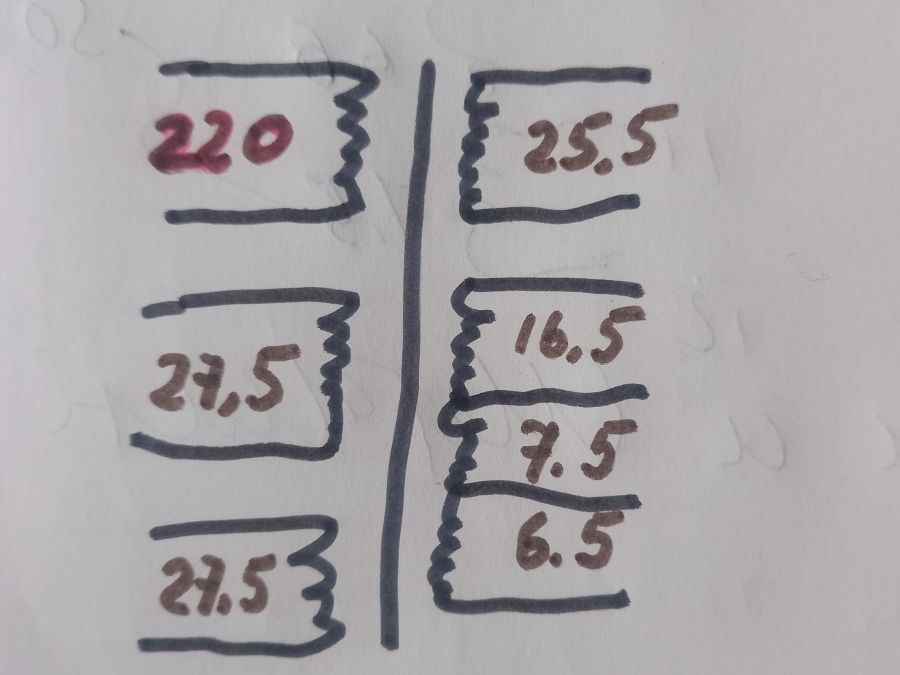 220
25.5
27,5
16.5
7.5
6.5
27.5